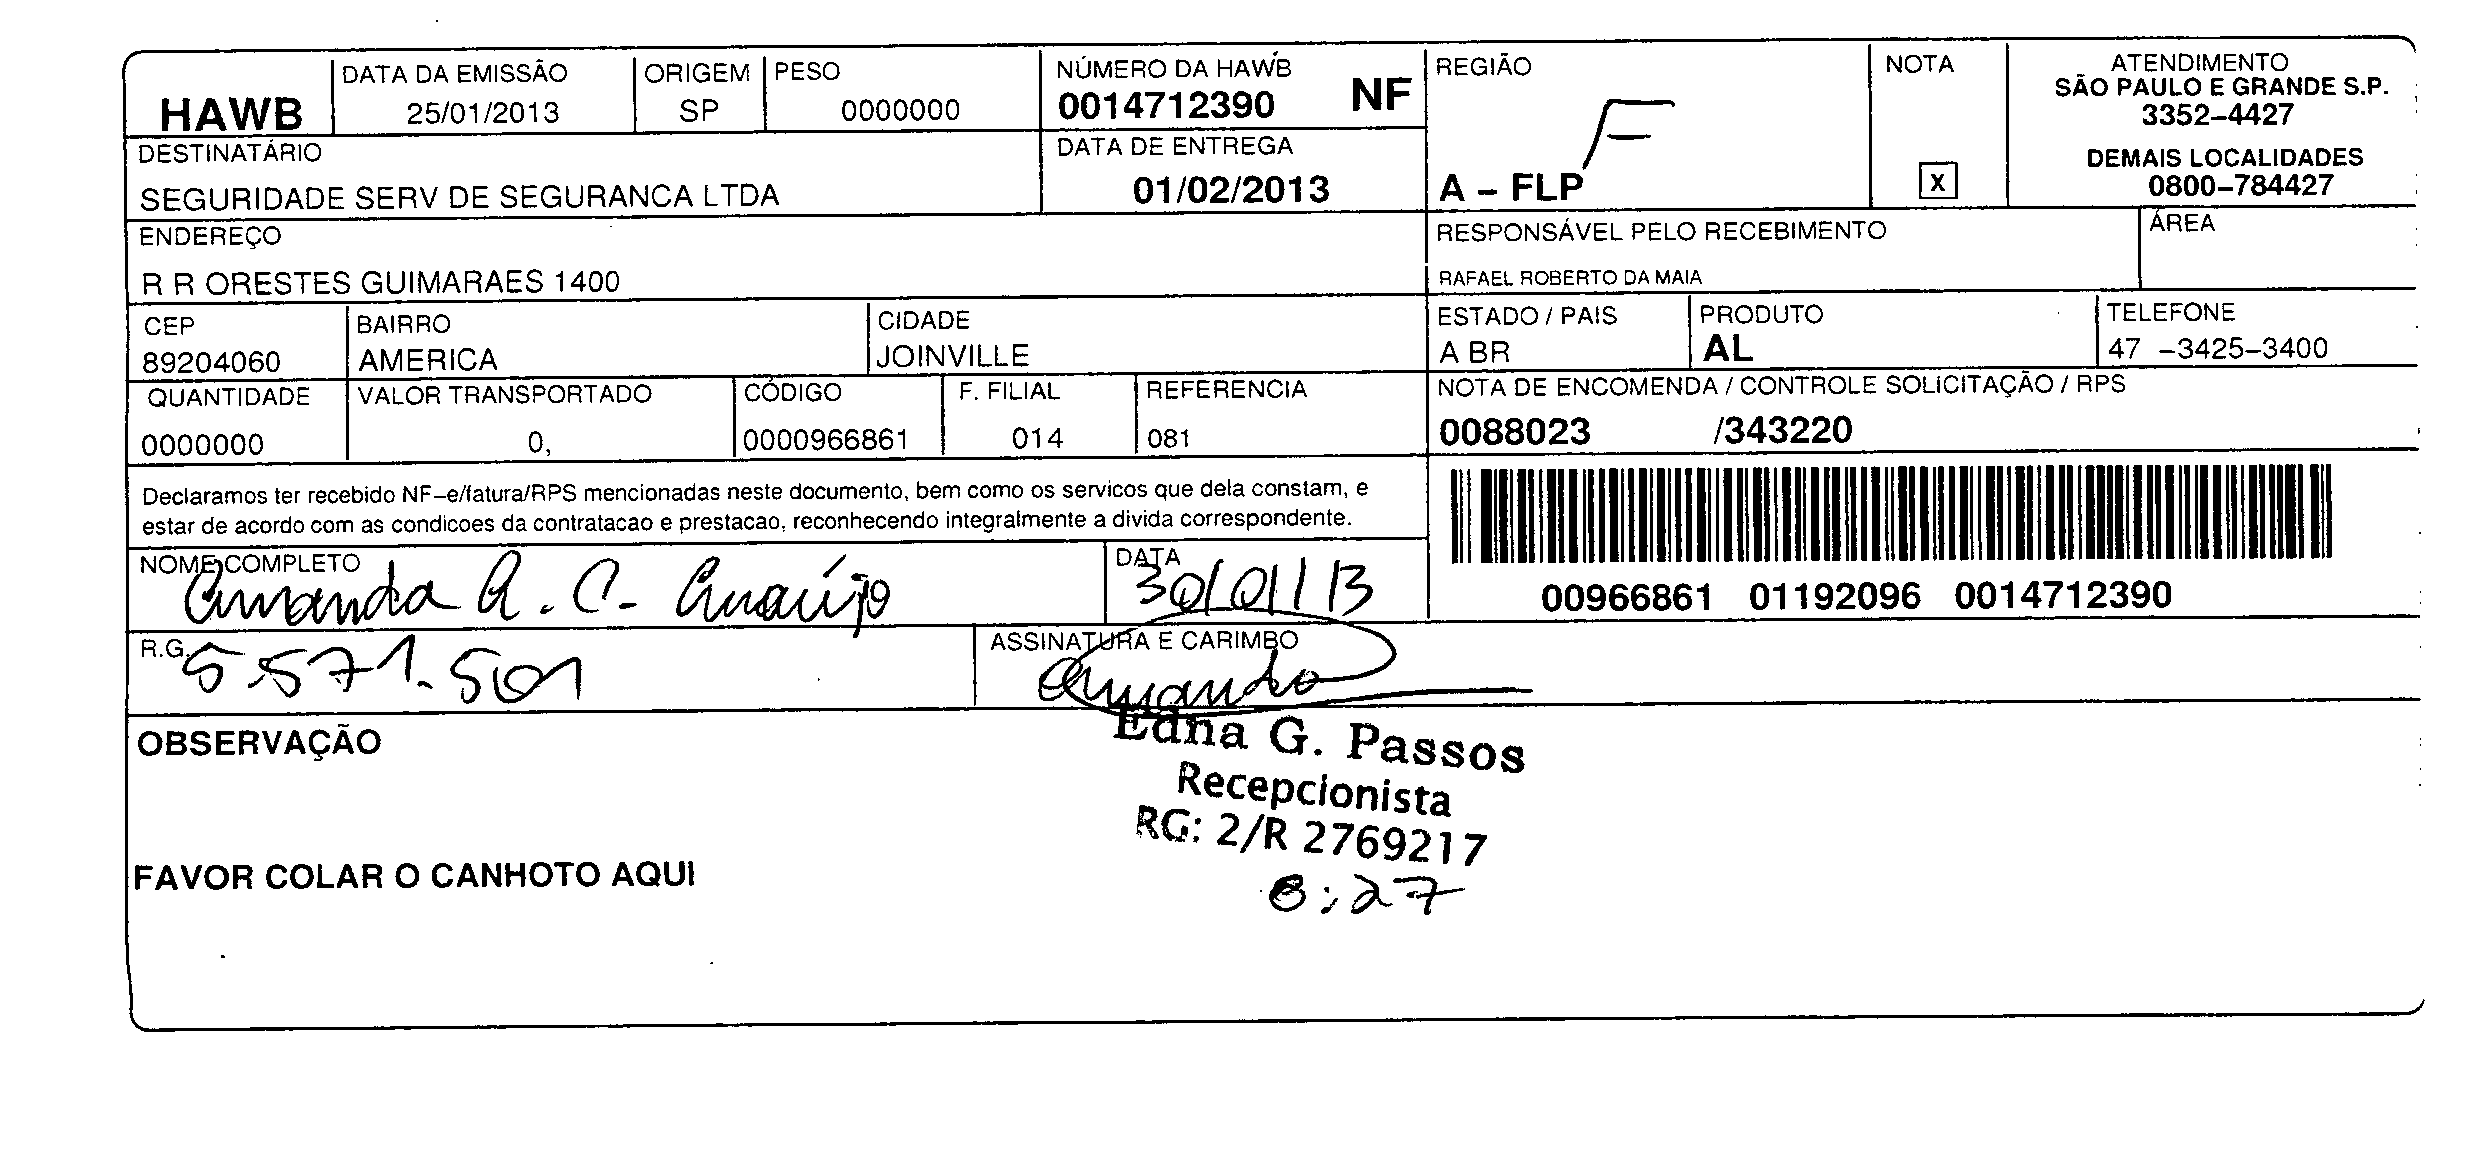 HAWB
DATA DA EMISSÃO
25/01/2013
ORIGEM
SP
PESO
0000000
NÚMERO DA HAWB
0014712390 NF
REGIÃO
F
A – FLP
NOTA
X
ATENDIMENTO
SÃO PAULO E GRANDE S.P.
3352–4427
DEMAIS LOCALIDADES
0800–784427
DESTINATÁRIO
SEGURIDADE SERV DE SEGURANCA LTDA
DATA DE ENTREGA
01/02/2013
ENDEREÇO
R R ORESTES GUIMARAES 1400
RESPONSÁVEL PELO RECEBIMENTO
RAFAEL ROBERTO DA MAIA
ÁREA
CEP
89204060
BAIRRO
AMERICA
CIDADE
JOINVILLE
ESTADO / PAIS
A BR
PRODUTO
AL
TELEFONE
47 –3425–3400
QUANTIDADE
0000000
VALOR TRANSPORTADO
0,
CÓDIGO
0000966861
F. FILIAL
014
REFERENCIA
081
NOTA DE ENCOMENDA / CONTROLE SOLICITAÇÃO / RPS
0088023 /343220
Declaramos ter recebido NF–e/fatura/RPS mencionadas neste documento, bem como os servicos que dela constam, e
estar de acordo com as condicoes da contratacao e prestacao, reconhecendo integralmente a divida correspondente.
00966861 01192096 0014712390
NOME COMPLETO
Amanda A. C. Araújo
DATA
30/01/13
R.G.
5.571.501
ASSINATURA E CARIMBO
Amanda
Edna G. Passos
Recepcionista
RG: 2/R 2769217
8:27
OBSERVAÇÃO
FAVOR COLAR O CANHOTO AQUI